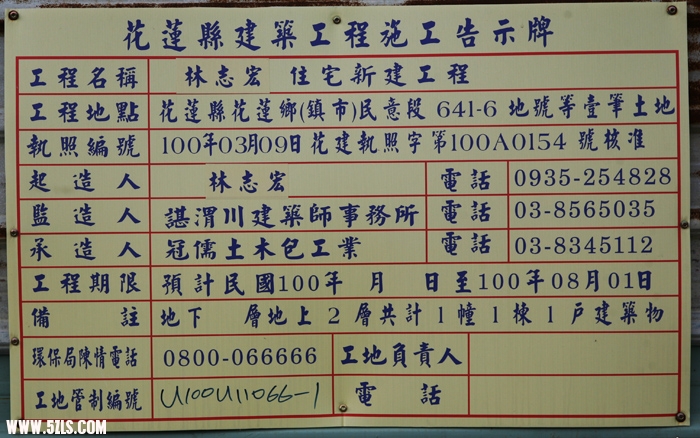 花蓮縣建築工程施工告示牌
工程名稱 林志宏 住宅新建工程
工程地點 花蓮縣花蓮鄉(鎮市)民意段 641-6 地號等壹筆土地
執照編號 100年03月09日花建執照字第100A0154 號核准
起造人 林志宏 電話 0935-254828
監造人 諶渭川建築師事務所 電話 03-8565035
承造人 冠儒土木包工業 電話 03-8345112
工程期限 預計民國100年 月 日至100年08月01日
備註 地下 層地上 2 層共計 1 幢 1 棟 1 戶建築物
環保局陳情電話 0800-066666 工地負責人
工地管制編號 U100U11066-1 電話
WWW.52LS.COM